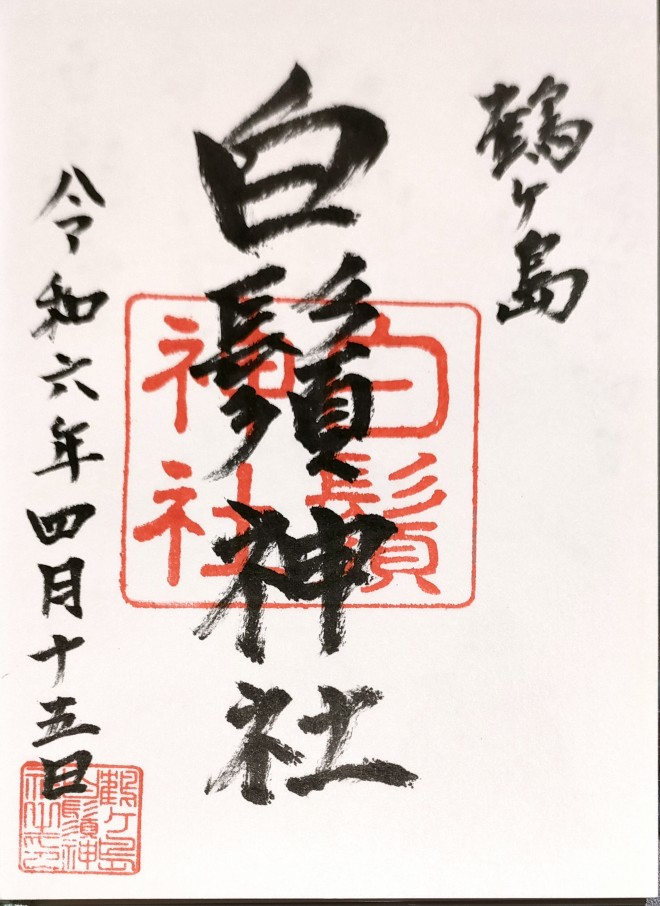 鶴ヶ島
白鬚神社
令和六年四月十五日
白鬚
神社
鶴ヶ島
白鬚神
社之印